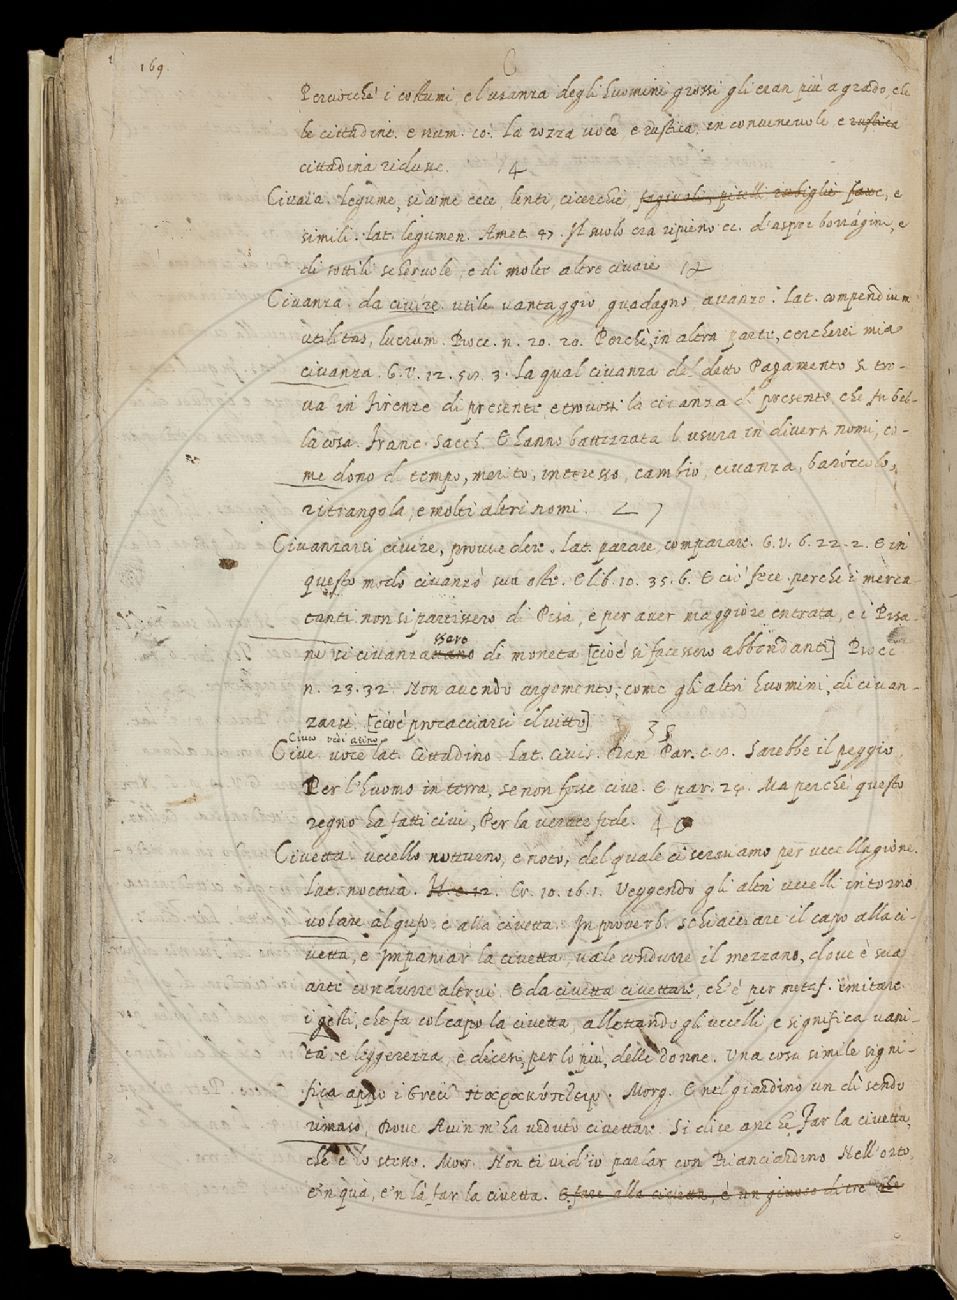 169.
C
Perciocchè i costumi, e l'usanza degli huomini grossi gli eran più a grado, che
le cittadine. e num. co. La rozza voce, e rustica, in convenevole e rustica
cittadina ridusse. 4
Civaia. Legume, sì come cece, lenti, cicerchie, fagiuoli, piselli rubiglie fave, e
simili. lat. legumen. Amet. 47. Il suolo era ripieno ec. d'aspre borrágini, e
di sottili scheruole, e di molte altre civaie 12
Civanza. da civire. utile vantaggio guadagno avanzo. Lat. compendium
utilitas, lucrum. Bocc. n. 20. 20. Perchè, in altra parte, cercherei mia
civanza. G. V. 12. 50. 3. La qual civanza del detto Pagamento si tro-
va in Firenze di presente, e trovossi la civanza di presente, che fu bel-
la cosa. Franc. Sacch. E hanno battezzata l'usura in diversi nomi, co-
me dono di tempo, merito, interesso, cambio, civanza, baróccolo,
ritrangola, e molti altri nomi. 27
Civanzarsi civire, provvedere. Lat. parare, comparare. G. V. 6. 22. 2. E in
questo modo civanzò sua oste. E lib. 10. 35. 6. E ciò fece perchè i merca-
tanti non si partissero di Pisa, e per aver maggiore entrata, e i Pisa-
ssero
ni si civanzavano di moneta [cioè si facessero abbondanti] Bocc
n. 23. 32. Non avendo argomento, come gli altri huomini, di civan-
zarsi. [cioè procacciarsi il vitto] 38
Civeo vedi atino
Cive voce lat. Cittadino. Lat. civis. Dan Par. c. 8. Sarebbe il peggio
Per l'huomo in terra, se non fosse cive. E par. 24. Ma perchè questo
regno ha fatti civi, Per la verace fede. 40
Civetta. uccello notturno, e noto, del quale ci serviamo per uccellagione.
Lat. noctua. M. 12. Cr. 10. 16. 1. Veggendo gli altri uccelli intorno
volare al gufo, e alla civetta. In proverb. schiacciare il capo alla ci-
vetta, e Impaniar la civetta, vale condurre il mezzano, dove è sua
arte condurre altrui. E da civetta civettare, ch'è per metaf. imitare
i gesti, che fa col capo la civetta, allettando gli uccelli, e significa vani-
tà, e leggerezza, e dicesi, per lo più, delle donne. Una cosa simile signi-
fica appo i Greci παρακύπτειν. Morg. E nel giardino un dì sendo
rimaso, Dove Avin m'ha veduto civettare. Si dice anche Far la civetta,
che è lo stesso. Mor. Non ti vid'io parlar con Bianciardino Nell'orto,
e 'n quà, e 'n là far la civetta. E fare alla civetta, è un giuoco di tre che